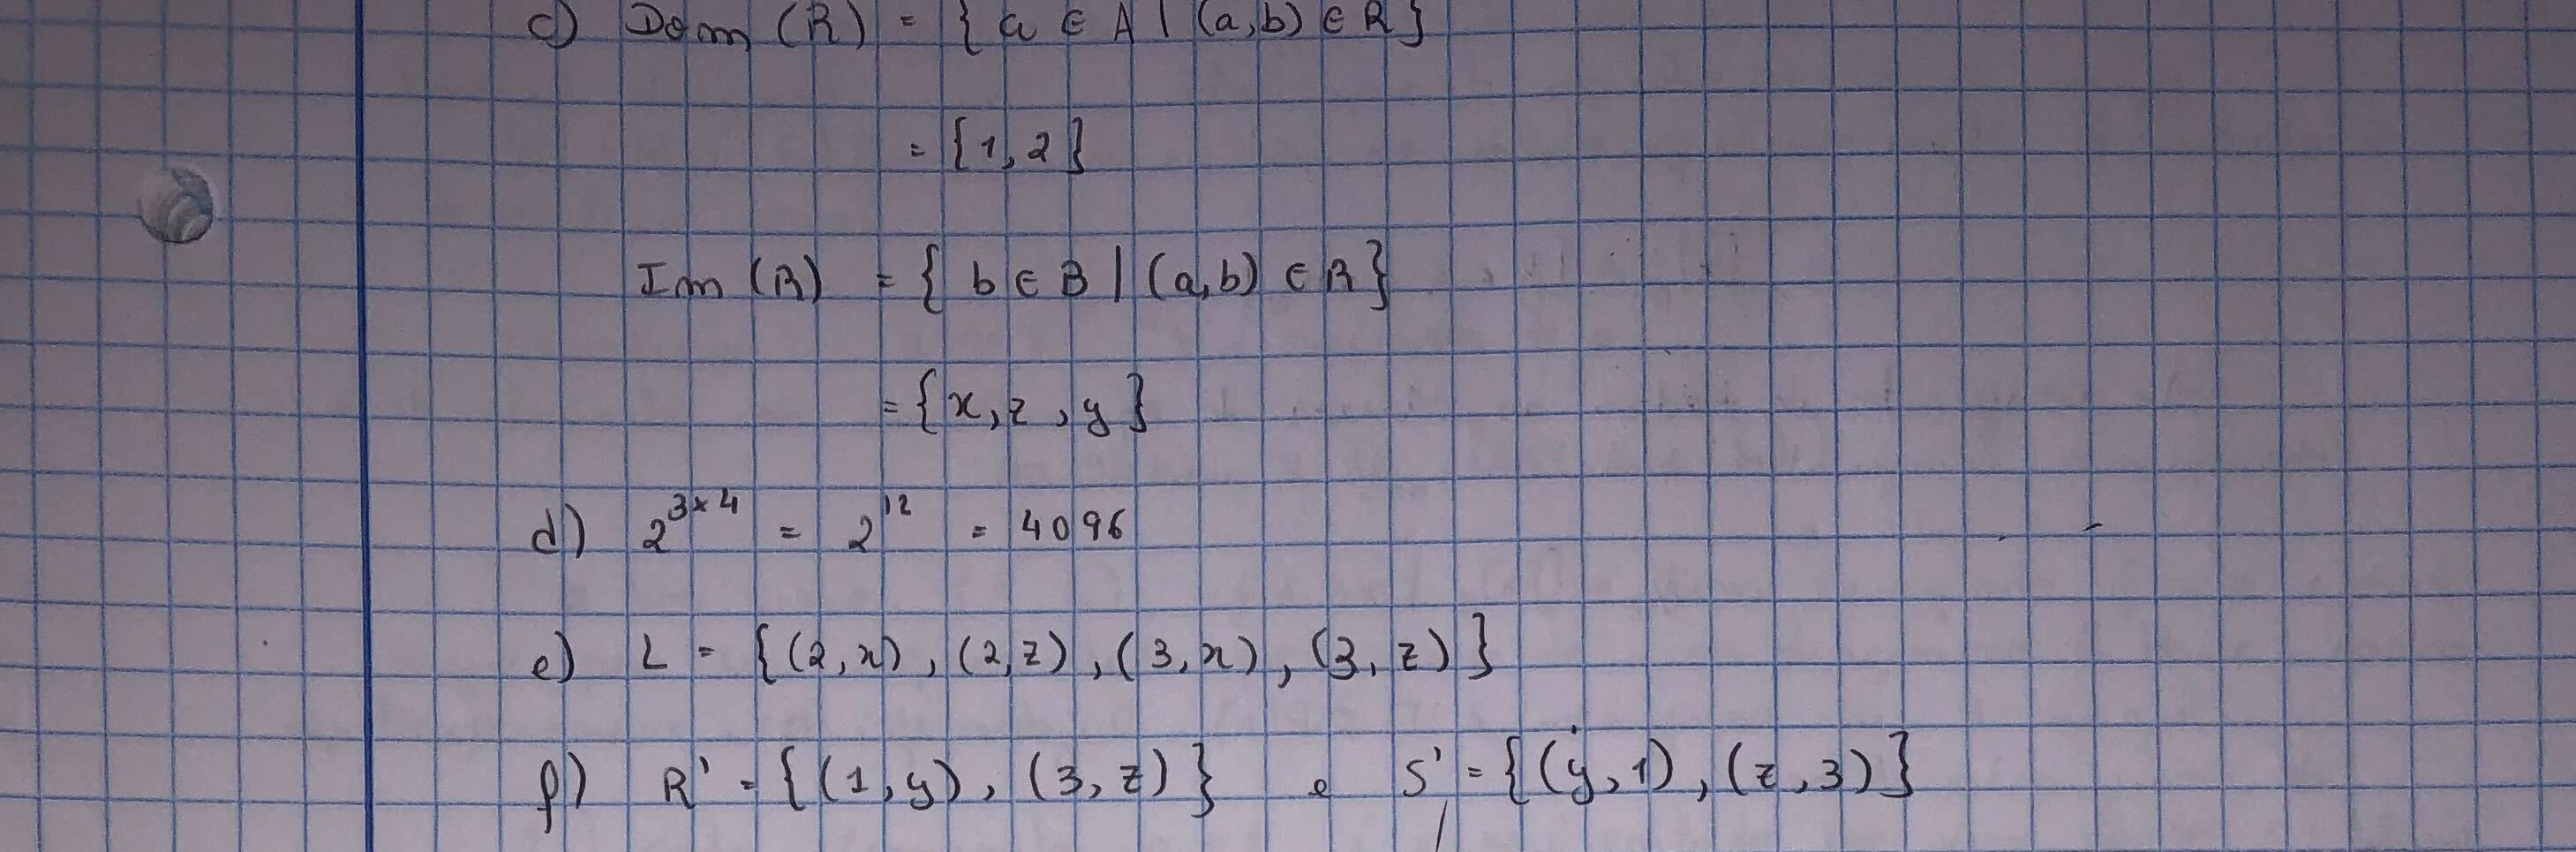 c) Dom (R) = { a ∈ A | (a,b) ∈ R }
= {1,2}
Im (R) = { b ∈ B | (a,b) ∈ R}
= {x,z,y}
d) 2^{3×4} = 2^{12} = 4096
e) L = {(2,x), (2,z), (3,x), (3,z)}
f) R' = {(1,y), (3,z)} e S' = {(y,1), (z,3)}